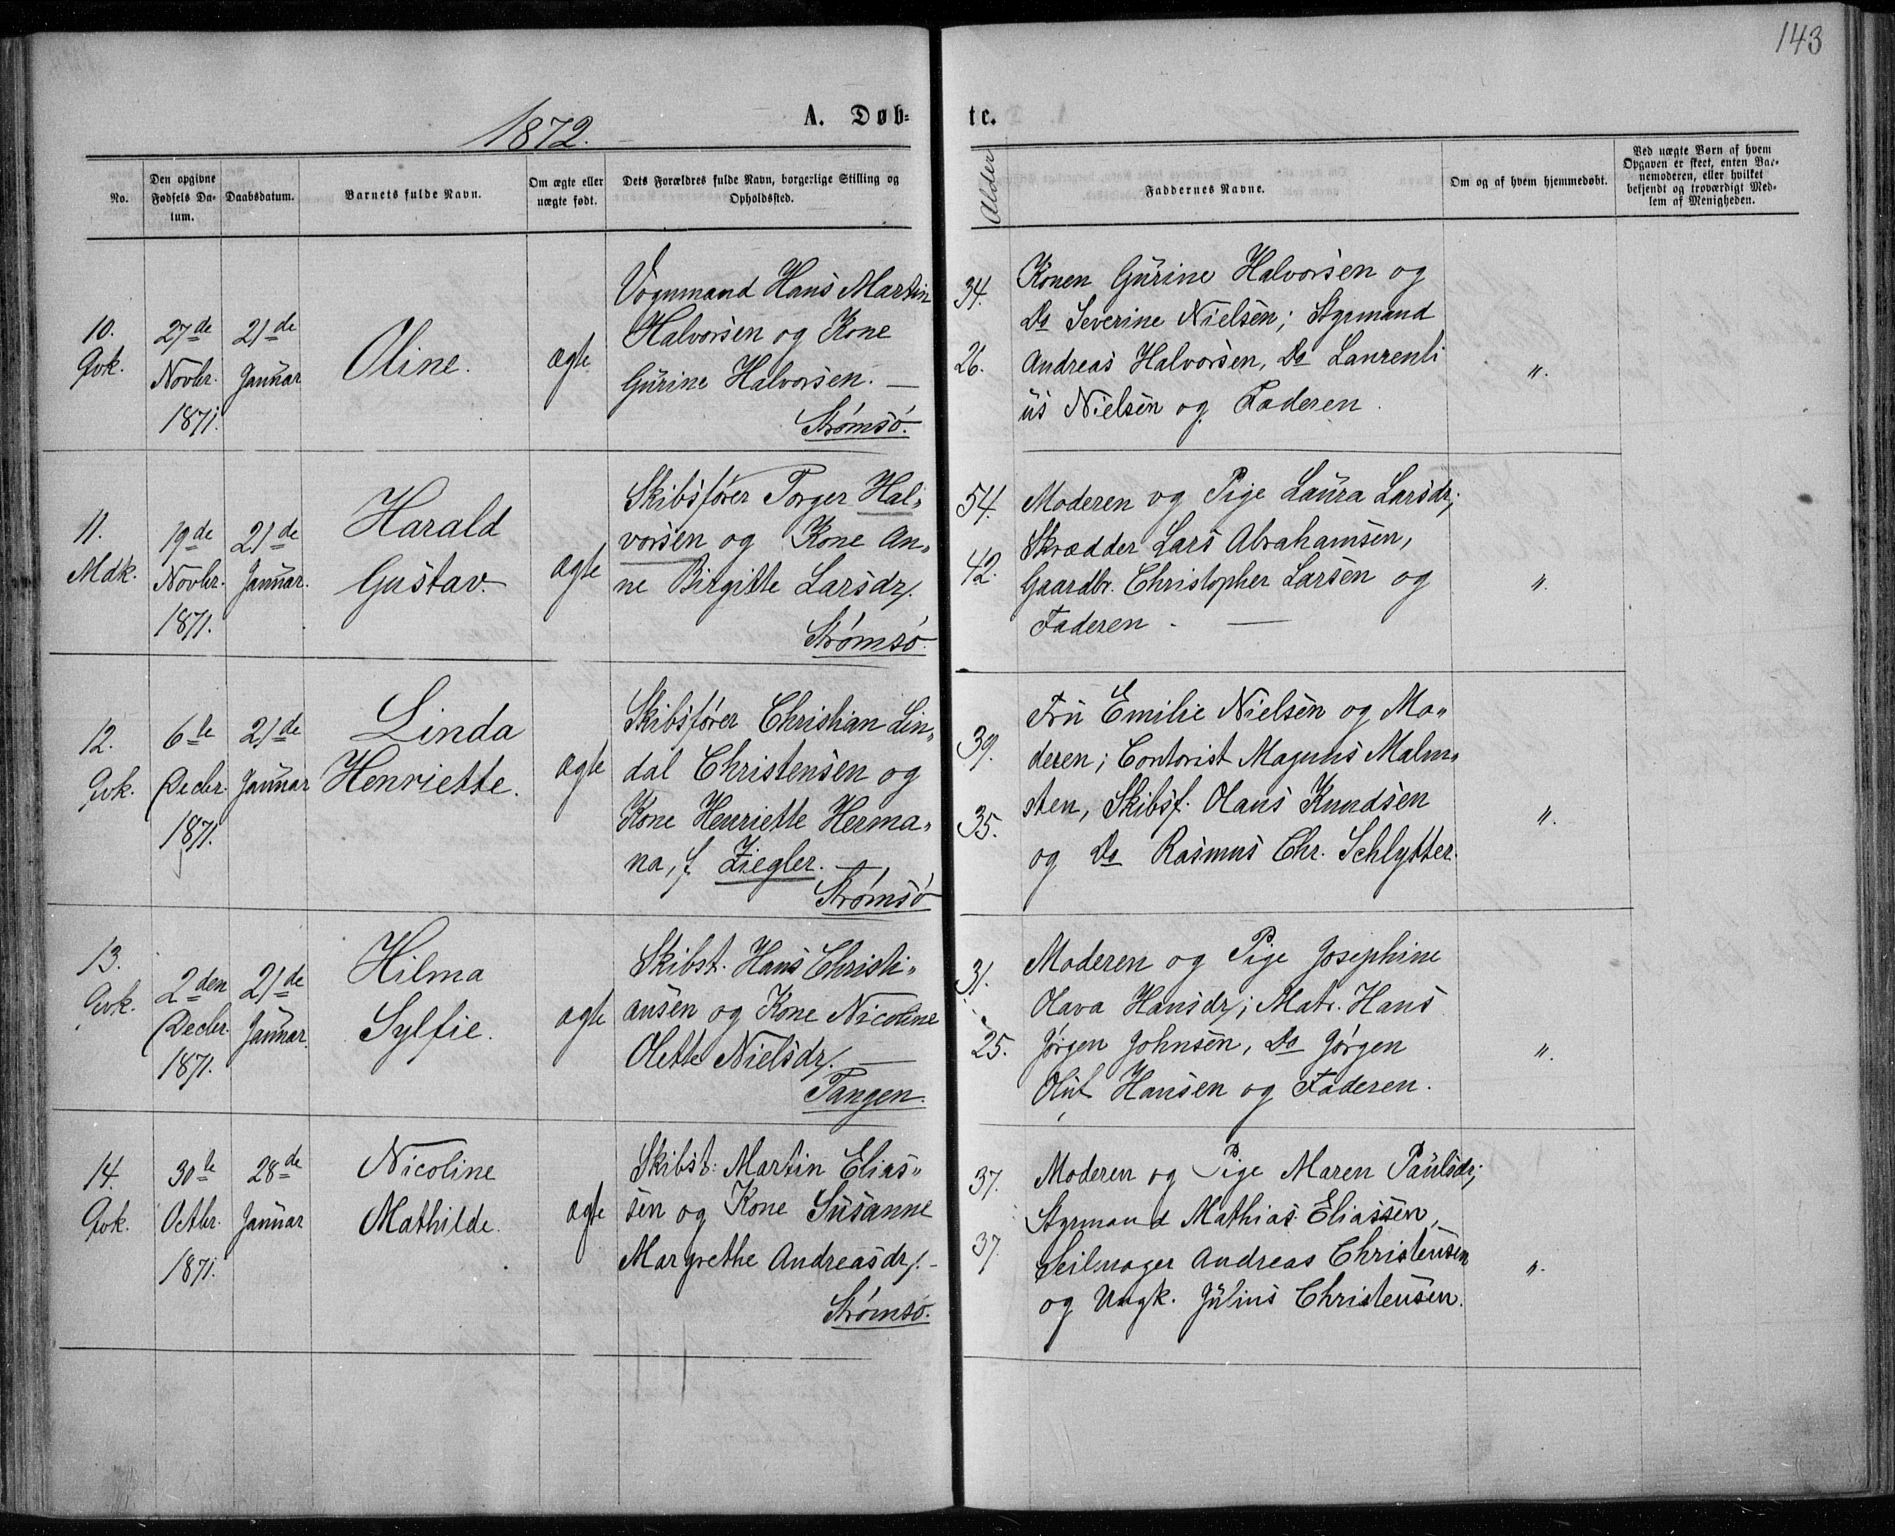 143
1872.
A. Døb-
te.
No.
Den opgivne Fødsels Da-
tum.
Daabsdatum.
Barnets fulde Navn.
Om ægte eller
uægte født.
Dets Forældres fulde Navn, borgerlige Stilling og
Opholdssted.
Alder
Faddernes Navne.
Om og af hvem hjemmedøbt.
Ved uægte Børn af hvem
Opgaven er skeet, enten Bar-
nemoderen, eller hvilket
bekjendt og troværdigt Med-
lem af Menigheden.
10.
Qvk.
27de
Novbr.
1871.
21de
Januar
Oline.
ægte
Vognmand Hans Martin
Halvorsen og Kone
Gurine Halvorsen. —
Strømsø.
34.
26.
Konen Gurine Halvorsen og
Do Severine Nielsen; Styrmand
Andreas Halvorsen, Do Laurenti
us Nielsen og Faderen.
"
11.
Mdk.
19de
Novbr.
1871.
21de
Januar.
Harald
Gustav.
ægte
Skibsfører Torger Hal„
vorsen og Kone An„
ne Birgitte Larsdr.
Strømsø.
54.
42.
Moderen og Pige Laura Larsdr;
Skrædder Lars Abrahamsen,
Gaardbr. Christopher Larsen og
Faderen. —
"
12.
Qvk.
6te
Decbr.
1871.
21de
Januar
Linda
Henriette.
ægte
Skibsfører Christian Lin„
dal Christensen og
Kone Henriette Herma„
na, f. Ziegler. —
Strømsø
39.
35.
Fru Emilie Nielsen og Mo„
deren; Contorist Magnus Malm„
sten, Skibsf. Olaus Knudsen
og Do Rasmus Chr. Schlytter.
"
13.
Qvk.
2den
Decbr.
1871.
21de
Januar.
Hilma
Sylfie.
ægte
Skibst. Hans Christi„
ansen og Kone Nicoline
Olette Nielsdr. —
Tangen.
31.
25.
Moderen og Pige Josephine
Olava Hansdr; Matr. Hans
Jørgen Johnsen, Do Jørgen
Oluf Hansen og Faderen.
"
14.
Qvk.
30te
Octbr.
1871.
28de
Januar
Nicoline
Mathilde.
ægte
Skibst. Martin Elias„
sen og Kone Susanne
Margrethe Andreasdr. —
Strømsø.
37.
37.
Moderen og Pige Maren Paulsdr;
Styrmand Mathias Eliassen,
Seilmager Andreas Christensen
og Ungk. Julius Christensen.
"